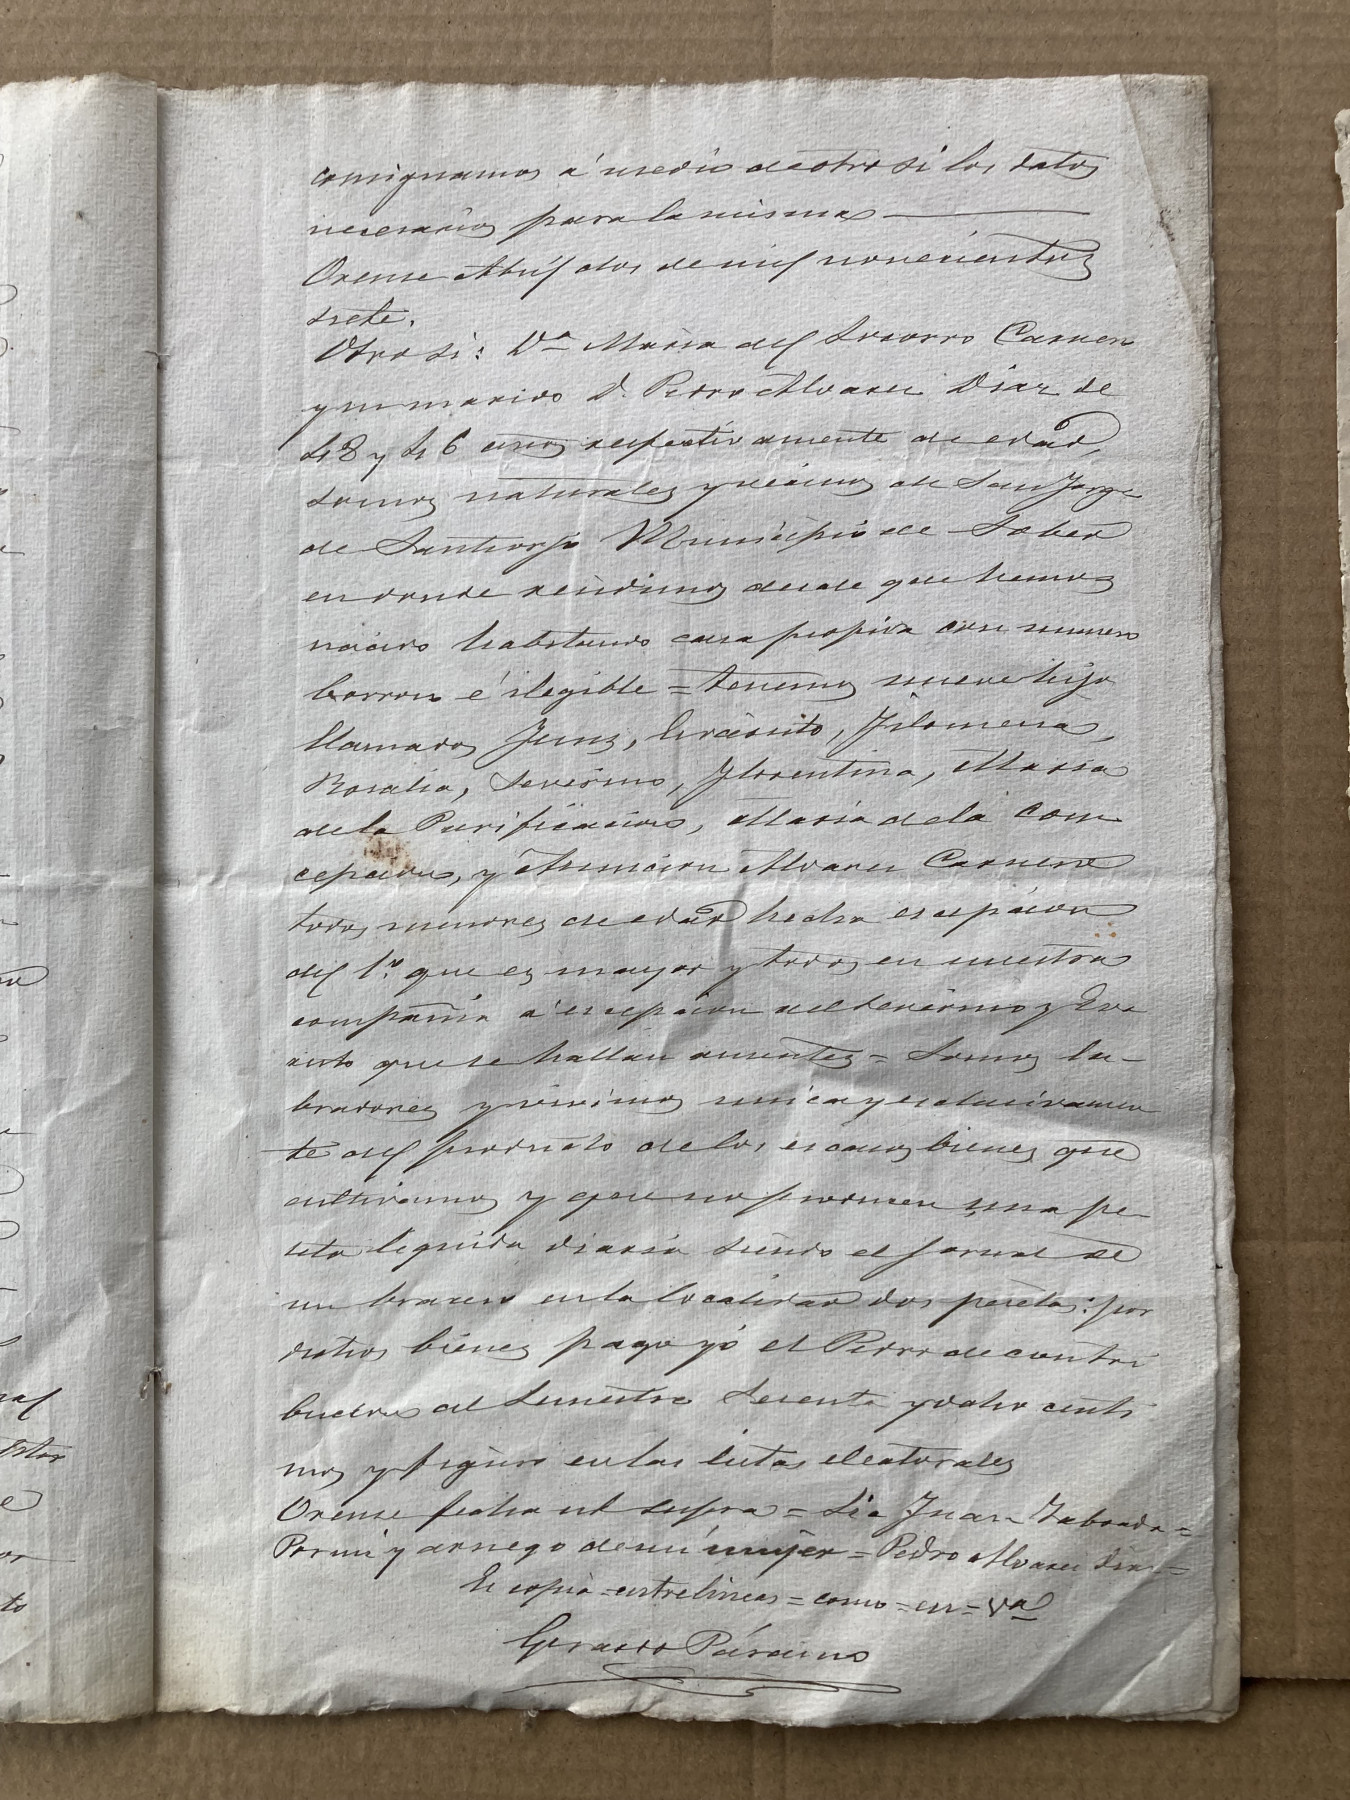 consignamos á medio de otro si los datos
necesarios para la misma
Orense Abril dos de mil novecientos
siete.
Otro si: Dª Maria del Socorro Carnero
y mi marido D. Pedro Alvarez Diaz de
48 y 46 años respectivamente de edad,
somos naturales y vecinos de San Jorge
de Santiorjo Municipio de Sober
en donde residimos desde que hemos
nacido habitando casa propia con numero
borron é ilegible = tenemos nueve hijos
llamados Jesus, Evaristo, Filomena,
Rosalia, Severino, Florentina, Maria
de la Purificacion, Maria de la Con
cepcion, y Asuncion Alvarez Carnero
todos menores de edad hecha escepcion
del 1º que es mayor y todos en nuestra
compañia á escepcion del Severino y Eva
risto que se hallan ausentes = Somos la-
bradores y vivimos unica y esclusivamen
te del producto de los escasos bienes que
cultivamos y que no producen una pe-
seta liquida diaria siendo el jornal de
un bracero en la localidad dos pesetas: por
dichos bienes pago yo el Pedro de contri
bucion al Semestre sesenta y ocho centi
mos y figuro en las listas electorales
Orense fecha ut supra = Lic Juan Taboada =
Por mi y a ruego de mi mujer = Pedro Alvarez Diaz =
Es copia = entrelineas = como = en = Vª
Gerardo Páramo